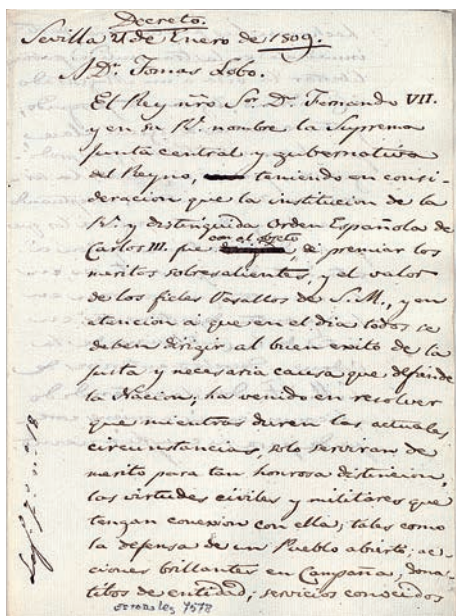 Decreto.
Sevilla 21 de Enero de 1809.
A Dn. Tomas Lobo.
El Rey nro Sor. Dn. Fernando VII.
y en su Rl. nombre la Suprema
junta central y gubernativa
del Reyno, teniendo en consi-
deracion que la institucion de la
Rl. y distinguida Orden Española de
con el objeto
Carlos III. fue de premiar los
meritos sobresalientes, y el valor
de los fieles Vasallos de S.M., y en
atencion a que en el dia todos se
deben dirigir al buen exito de la
justa y necesaria causa que defiende
la Nacion; ha venido en resolver
que mientras duren las actuales
circunstancias, solo serviran de
merito para tan honrosa distincion,
las virtudes civiles y militares que
tengan conexion con ella; tales como
la defensa de un Pueblo abierto; ac-
ciones brillantes en Campaña; dona-
tibos de entidad; servicios conocidos
7578